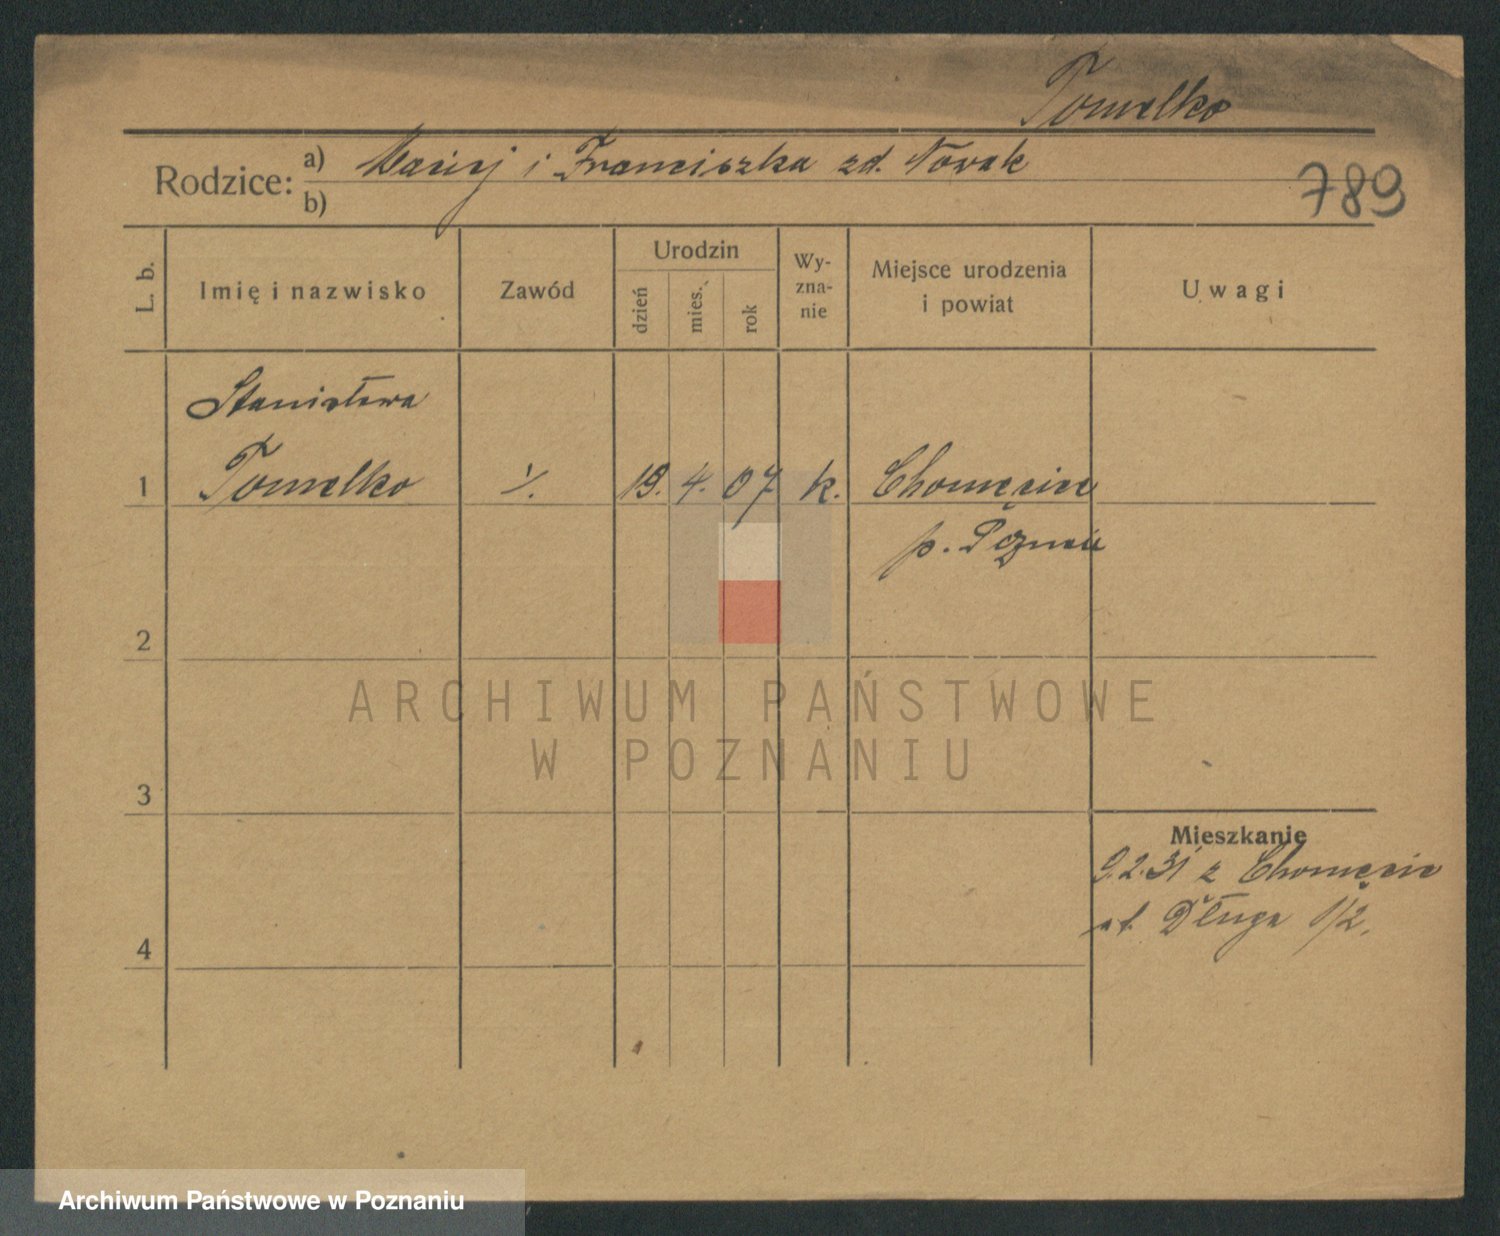 Tomelko
Rodzice: a) Maciej i Franciszka zd. Nowak
b)
789
L. b.
Imię i nazwisko
Zawód
Urodzin
dzień
mies.
rok
Wy-
zna-
nie
Miejsce urodzenia
i powiat
Uwagi
Stanisława
1 Tomelko 1/. 19. 4. 07 k. Chomęcice
p. Poznań
2
ARCHIWUM PAŃSTWOWE
W POZNANIU
3
Mieszkanie
9.2.31 z Chomęcic
Długa 1/2.
4
Archiwum Państwowe w Poznaniu